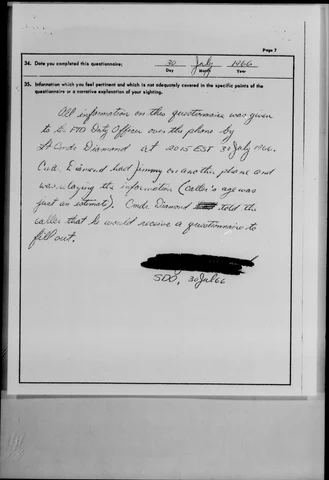 Page 7
34. Date you completed this questionnaire: 30 July 1966
Day Month Year
35. Information which you feel pertinent and which is not adequately covered in the specific points of the
questionnaire or a narrative explanation of your sighting.
All information on this questionnaire was given
to the FTD Duty Officer over the phone by
Lt Cmdr Diamond at 2015 EST 30 July 1966.
Cmdr. Diamond had Jimmy on another phone and
was relaying the information (caller's age was
just an estimate). Cmdr Diamond told the
caller that he would receive a questionnaire to
fill out.
SDO, 30 Jul 66